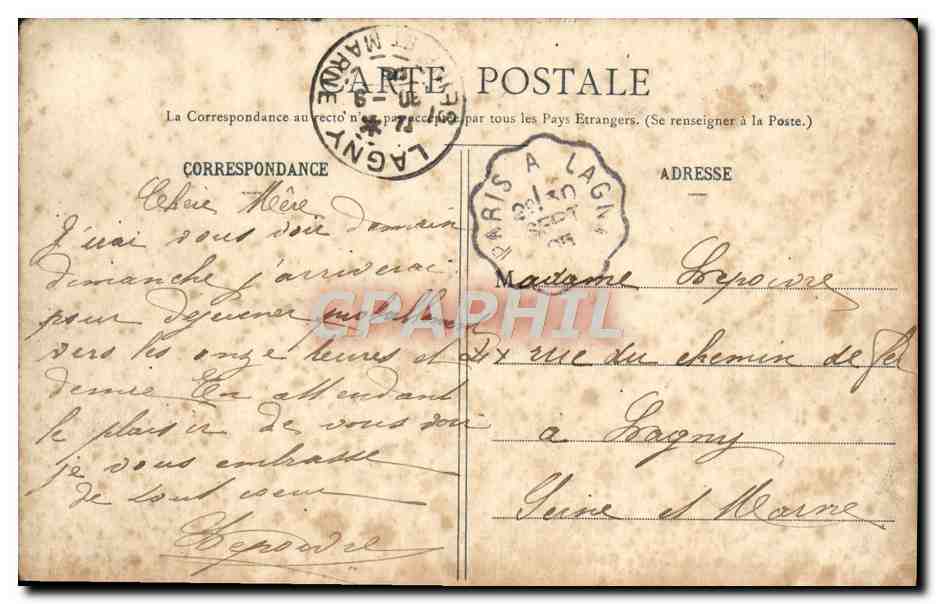 CARTE POSTALE
La Correspondance au recto n'est pas acceptée par tous les Pays Etrangers. (Se renseigner à la Poste.)
CORRESPONDANCE
Chère Mère
J'irai vous voir demain
dimanche j'arriverai
pour dejeuner
vers les onze heures et
demie En attendant
le plaisir de vous voir
je vous embrasse
de tout coeur
Lepoivre
ADRESSE
Madame Lepoivre
rue du chemin de fer
a Lagny
Seine et Marne
LAGNY
SEINE ET MARNE
30 - 9
PARIS A LAGNY
30
SEPT
05
CPAPHIL